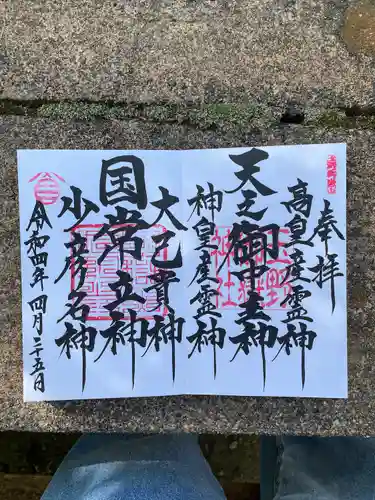 奉拝
高皇産霊神
天之御中主神
神皇産霊神
大己貴神
国常立神
少彦名神
令和四年四月二十五日